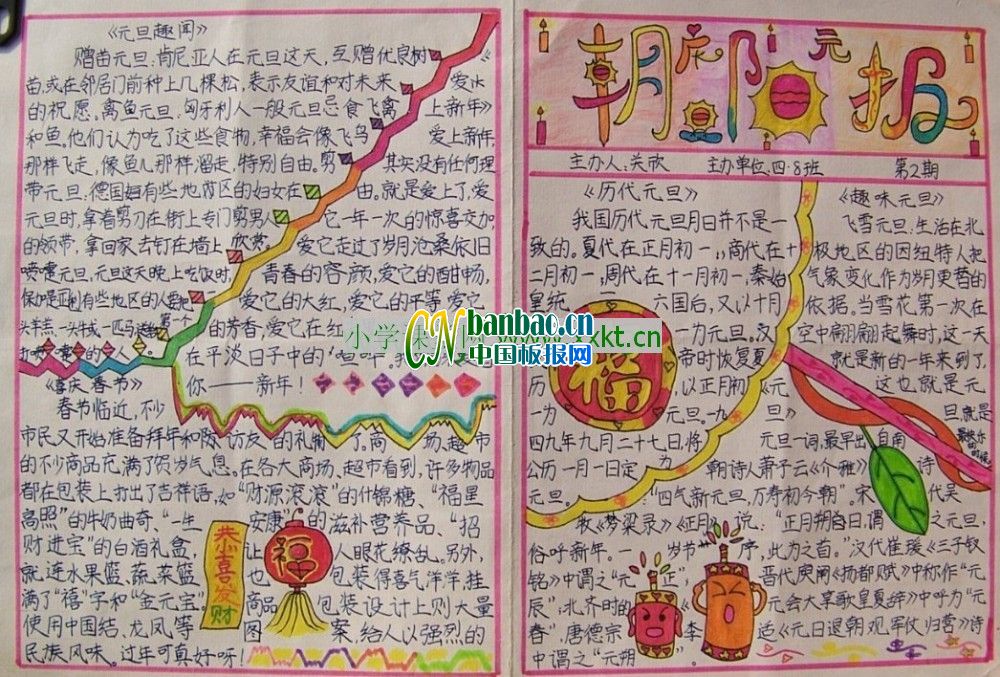 《元旦趣闻》
赠苗元旦:肯尼亚人在元旦这天,互赠优良树
苗,或在邻居门前种上几棵松,表示友谊和对未来
的祝愿。禽鱼元旦,匈牙利人一般元旦忌食飞禽
和鱼。他们认为吃了这些食物,幸福会像飞鸟
那样飞走,像鱼儿那样溜走,特别自由。剪
带元旦,德国妇有些地的区的妇女在
元旦时,拿着剪刀在街上专门剪男人
的领带,拿回家去钉在墙上欣赏。
喷嚏元旦,元旦这天晚上吃饭时,
保加利亚有些地区的人
《爱冰
上新年》
爱上新年,
其实没有任何理
由。就是爱上了,爱
它一年一次的惊喜交加,
爱它走过了岁月沧桑依旧
青春的容颜,爱它的酣畅,
爱它的大红,爱它的平等,爱它
的芳香,爱它在红
在平淡日子中的
你——新年!
《喜庆春节》
春节临近,不少
市民又开始准备拜年和 访友的礼 了。商场、超市
的不少商品充满了贺岁气息。在各大商场、超市看到,许多物品
都在包装上打出了吉祥语,如“财源滚滚”的什锦糖、“福里
高照”的牛奶曲奇、“一生安康”的滋补营养品、“招
财进宝”的白酒礼盒,让人眼花缭乱。另外,
就连水果篮、蔬菜篮也包装得喜气洋洋,挂
满了“禧”字和“金元宝”。商品包装设计上则大量
使用中国结、龙凤等图案,给人以强烈的
民族风味。过年可真好呀!
恭喜发财
福
朝阳报
庆元旦
主办人:关欣 主办单位:四·8班 第2期
《历代元旦》
我国历代元旦月日并不是一
致的。夏代在正月初一,商代在十
二月初一,周代在十一月初一,秦始
皇统一六国后,又以十月
一为元旦。汉
帝时恢复夏
历,以正月初一
为元旦。一九
四九年九月二十七日,将
公历一月一日定为
元旦。
福
《趣味元旦》
飞雪元旦,生活在北
极地区的因纽特人把
气象变化作为岁月更替的
依据。当雪花第一次在
空中翩翩起舞时,这一天
就是新的一年来到了,
这也就是元
旦
《元旦》
元旦一词,最早出自南
朝诗人萧子云《介雅》诗
“四气新元旦,万寿初今朝”宋代吴
牧《梦梁录》《正月》说:“正月朔日,谓之元旦,
俗呼新年。一岁节序,此为之首。”汉代崔瑗《三子钗
铭》中谓之“元正”晋代庾阐《扬都赋》中称作“元
辰”,北齐时的《元会大享歌皇夏辞》中呼为“元
春”,唐德宗李适《元日退朝观军仗归营》诗
中谓之“元朔”
小学课
xkt.cn
CN banbao.cn
中国板报网